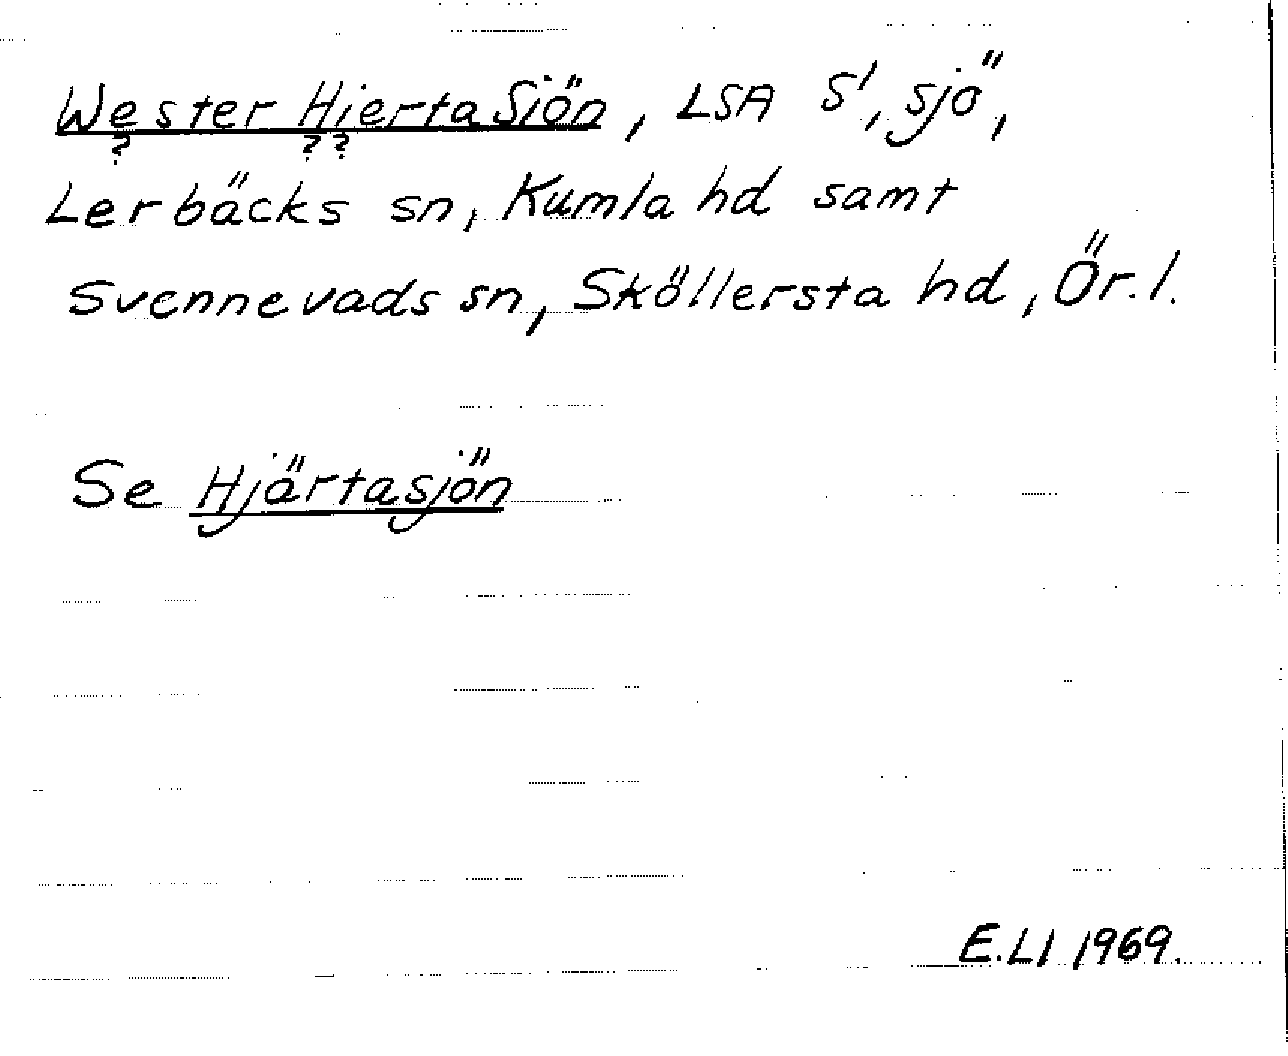 Wester HiertaSiön, LSA S1, sjö,
? ? ?
Lerbäcks sn, Kumla hd samt
Svennevads sn, Sköllersta hd, Ör.l.
Se Hjärtasjön
E.LI 1969.